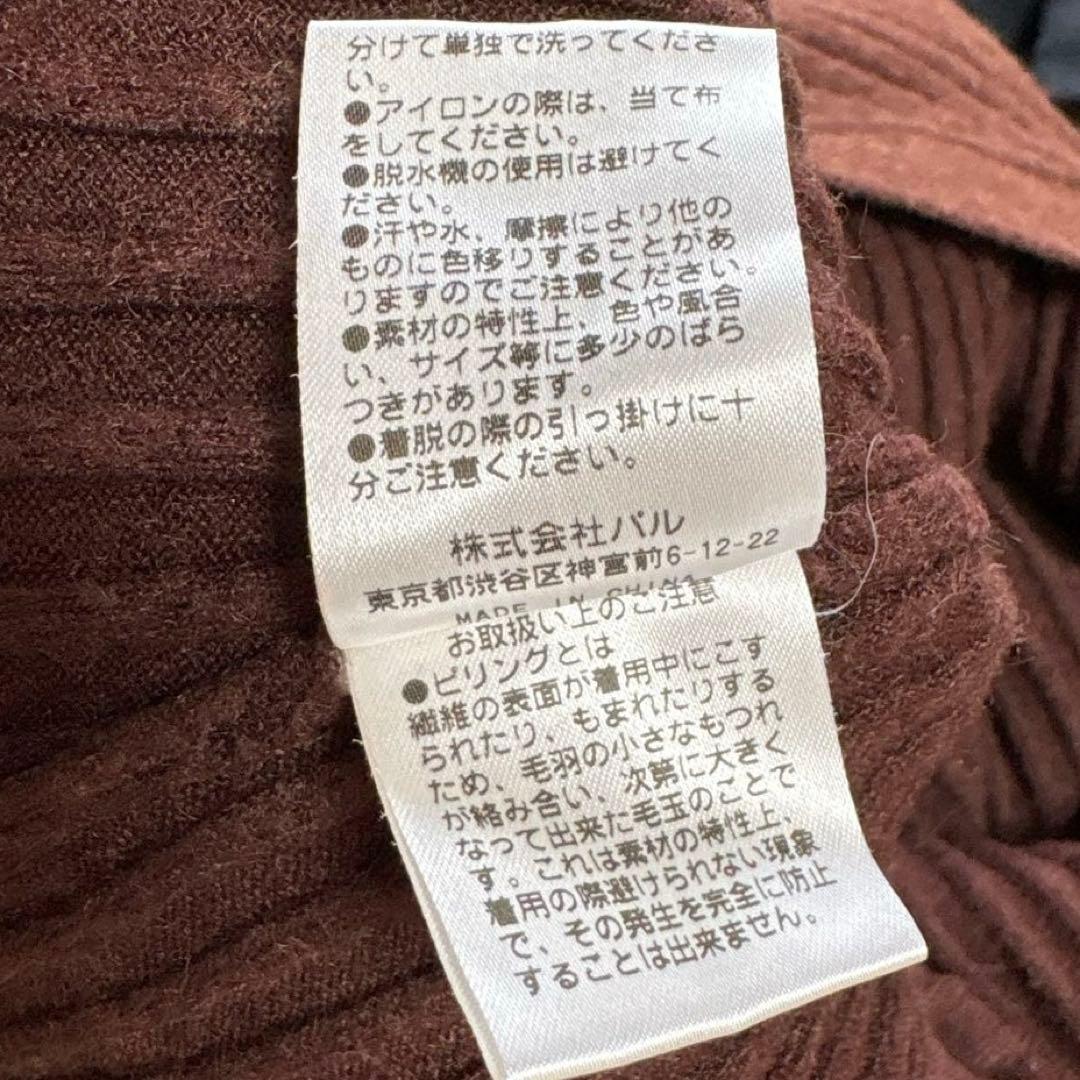 分けて単独で洗ってくださ
い。
●アイロンの際は、当て布
をしてください。
●脱水機の使用は避けてく
ださい。
●汗や水、摩擦により他の
ものに色移りすることがあ
りますのでご注意ください。
●素材の特性上、色や風合
い、サイズ等に多少のばら
つきがあります。
●着脱の際の引っ掛けに十
分ご注意ください。
株式会社パル
東京都渋谷区神宮前6-12-22
MADE IN CHINA
お取扱い上のご注意
●ピリングとは
繊維の表面が着用中にこす
られたり、もまれたりする
ため、毛羽の小さなもつれ
が絡み合い、次第に大きく
なって出来た毛玉のことで
す。これは素材の特性上、
着用の際避けられない現象
で、その発生を完全に防止
することは出来ません。